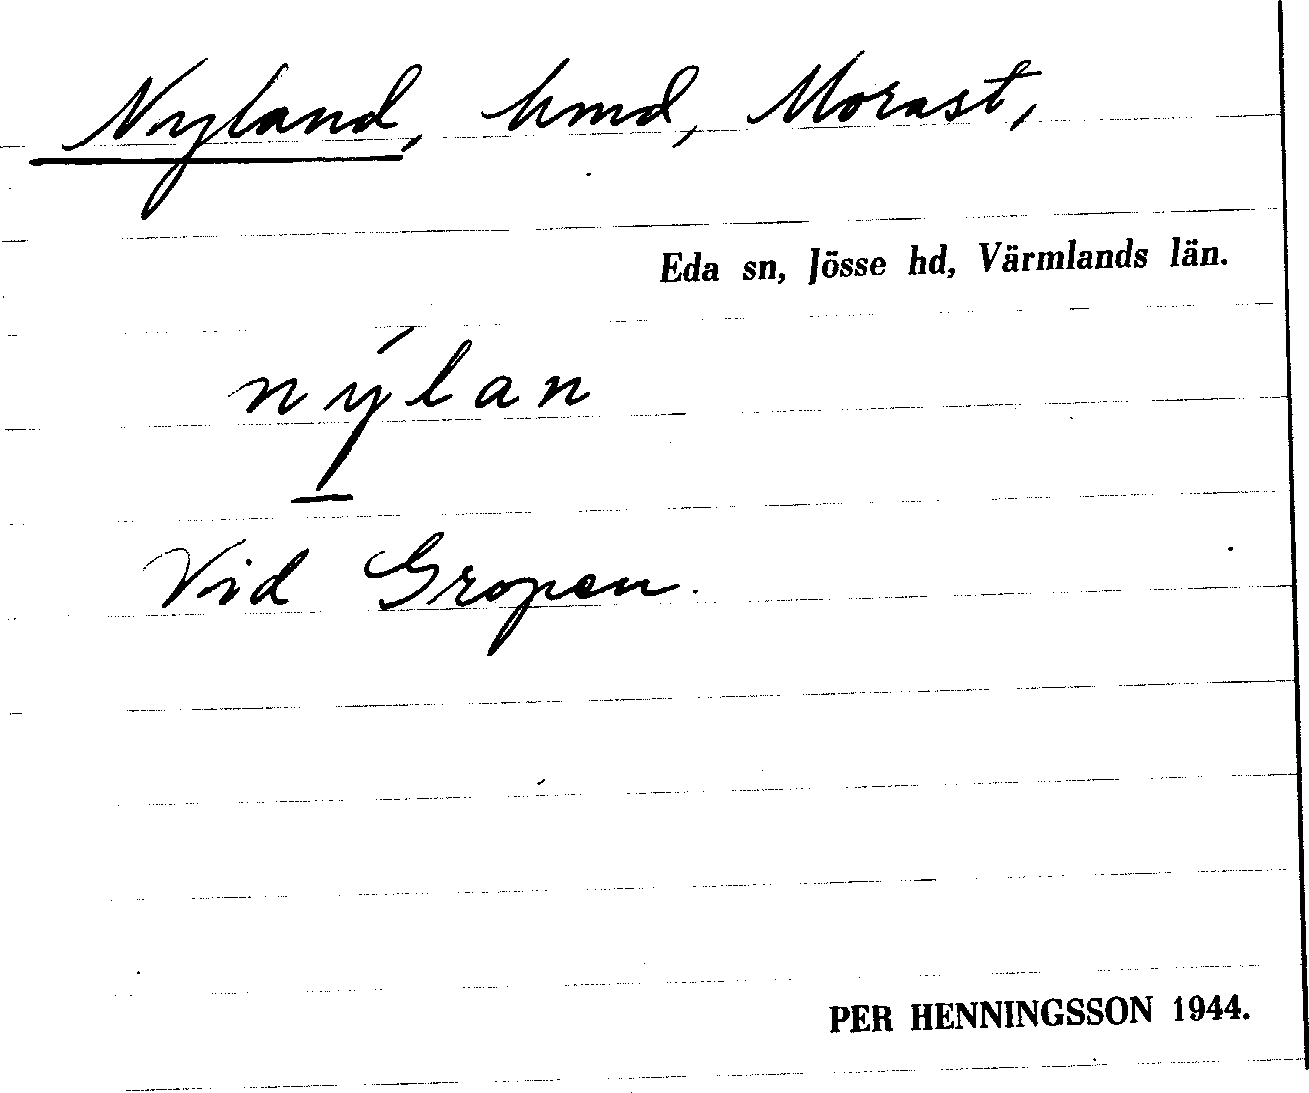 Nyland, hmd, Morast,
Eda sn, Jösse hd, Värmlands län.
nýlan
Vid Gropen.
PER HENNINGSSON 1944.